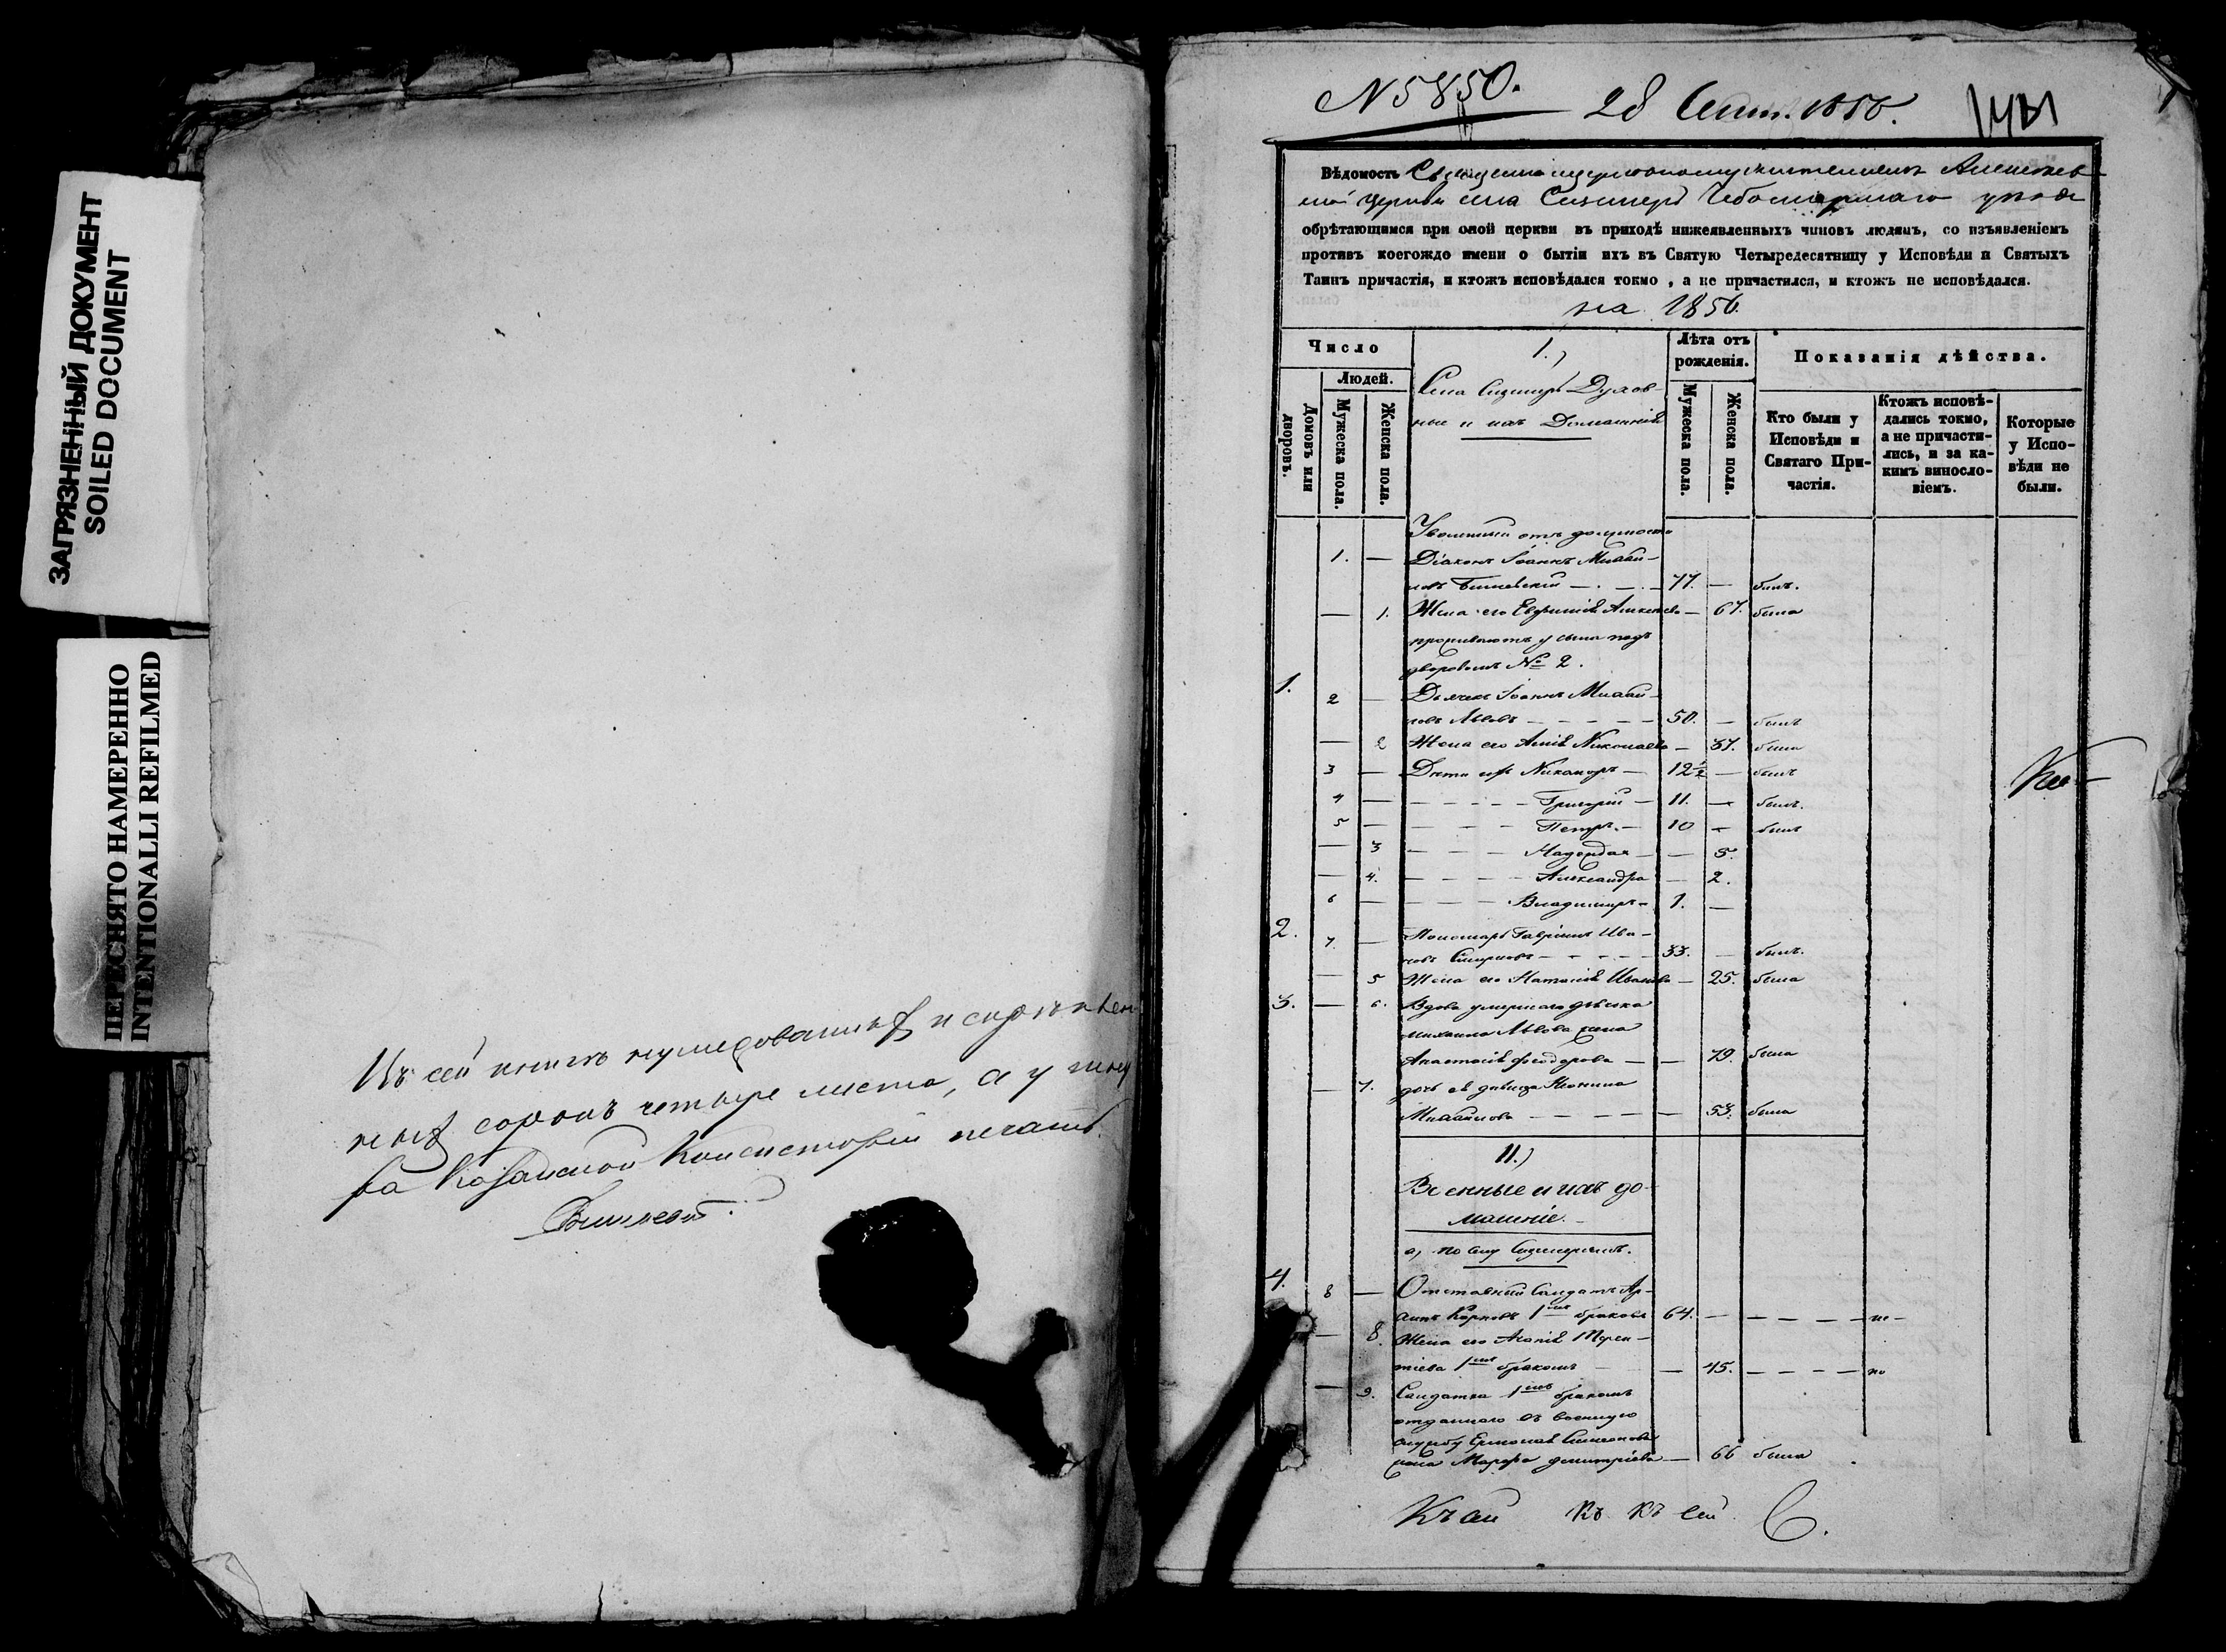 ЗАГРЯЗНЕННЫЙ ДОКУМЕНТ
SOILED DOCUMENT
ПЕРЕСНЯТО НАМЕРЕННО
INTENTIONALLI REFILMED
Въ сей книгѣ нумерованныхъ и скрѣплен
ныхъ сорокъ четыре листа, а у шну
ра Казанской Консисторіи печать.
N 5850.
28 Сент. 1856.
Вѣдомость Священноцерковнослужителемъ Алексѣев
ской церкви села Сюндырь Чебоксарскаго уѣзда
обрѣтающимся при оной церкви въ приходѣ нижеявленныхъ чиновъ людямъ, со изъявленіемъ
противъ коегождо имени о бытіи ихъ въ Святую Четыредесятницу у Исповѣди и Святыхъ
Таинъ причастія, и ктожъ исповѣдался токмо, а не причастился, и ктожъ не исповѣдался.
на 1856.
Число
Домовъ или дворовъ.
Людей.
Мужеска пола.
Женска пола.
1.)
Духов-
ные и ихъ Домашніе
Лѣта отъ рожденія.
Мужеска пола.
Женска пола.
Показанія дѣйства.
Кто были у Исповѣди и Святаго При-частія.
Ктожъ исповѣ-дались токмо, а не причасти-лись, и за ка-кимъ виносло-віемъ.
Которые у Испо-вѣди не были.
Уволенный отъ должности
1. — Діаконъ Іоаннъ Михаи-
ловъ — 77. — былъ.
— 1. Жена его Евфимія Алексеева — 67. была
проживаютъ у сына подъ
дворовымъ № 2.
1. 2 — Дьячекъ Іоаннъ Михаи-
ловъ Львовъ — 50. — былъ
— 2 Жена его Николаева — 37. была
3 — Дѣти ихъ Никаноръ — 12½ — былъ
4 — Григорій — 11. — былъ.
5 — Петръ — 10 — былъ
— 3 Надежда — 5.
— 4. Александра — 2.
6 — Владиміръ — 1. —
2. 7. — Пономарь Гавріилъ Ива-
новъ Смирновъ — 33. — былъ.
— 5 Жена его Наталія Иванова — 25. была
3. — 6. Вдова умершаго дьячка
Михаила Львова жена
Анастасія Феодорова — 79. была
— 7. дочь ея дѣвица
Михайлова — 53. была
II.)
Военные и ихъ до-
машніе.
4. 8 — Отставный Солдатъ
Карповъ 1мъ бракомъ 64. — не
— 8. Жена его Терен-
тіева 1мъ бракомъ — 45. — не
— 9. Солдатка 1мъ бракомъ
отданнаго въ военную
службу Симеонова
жена Марфа Димитріева — 66 была